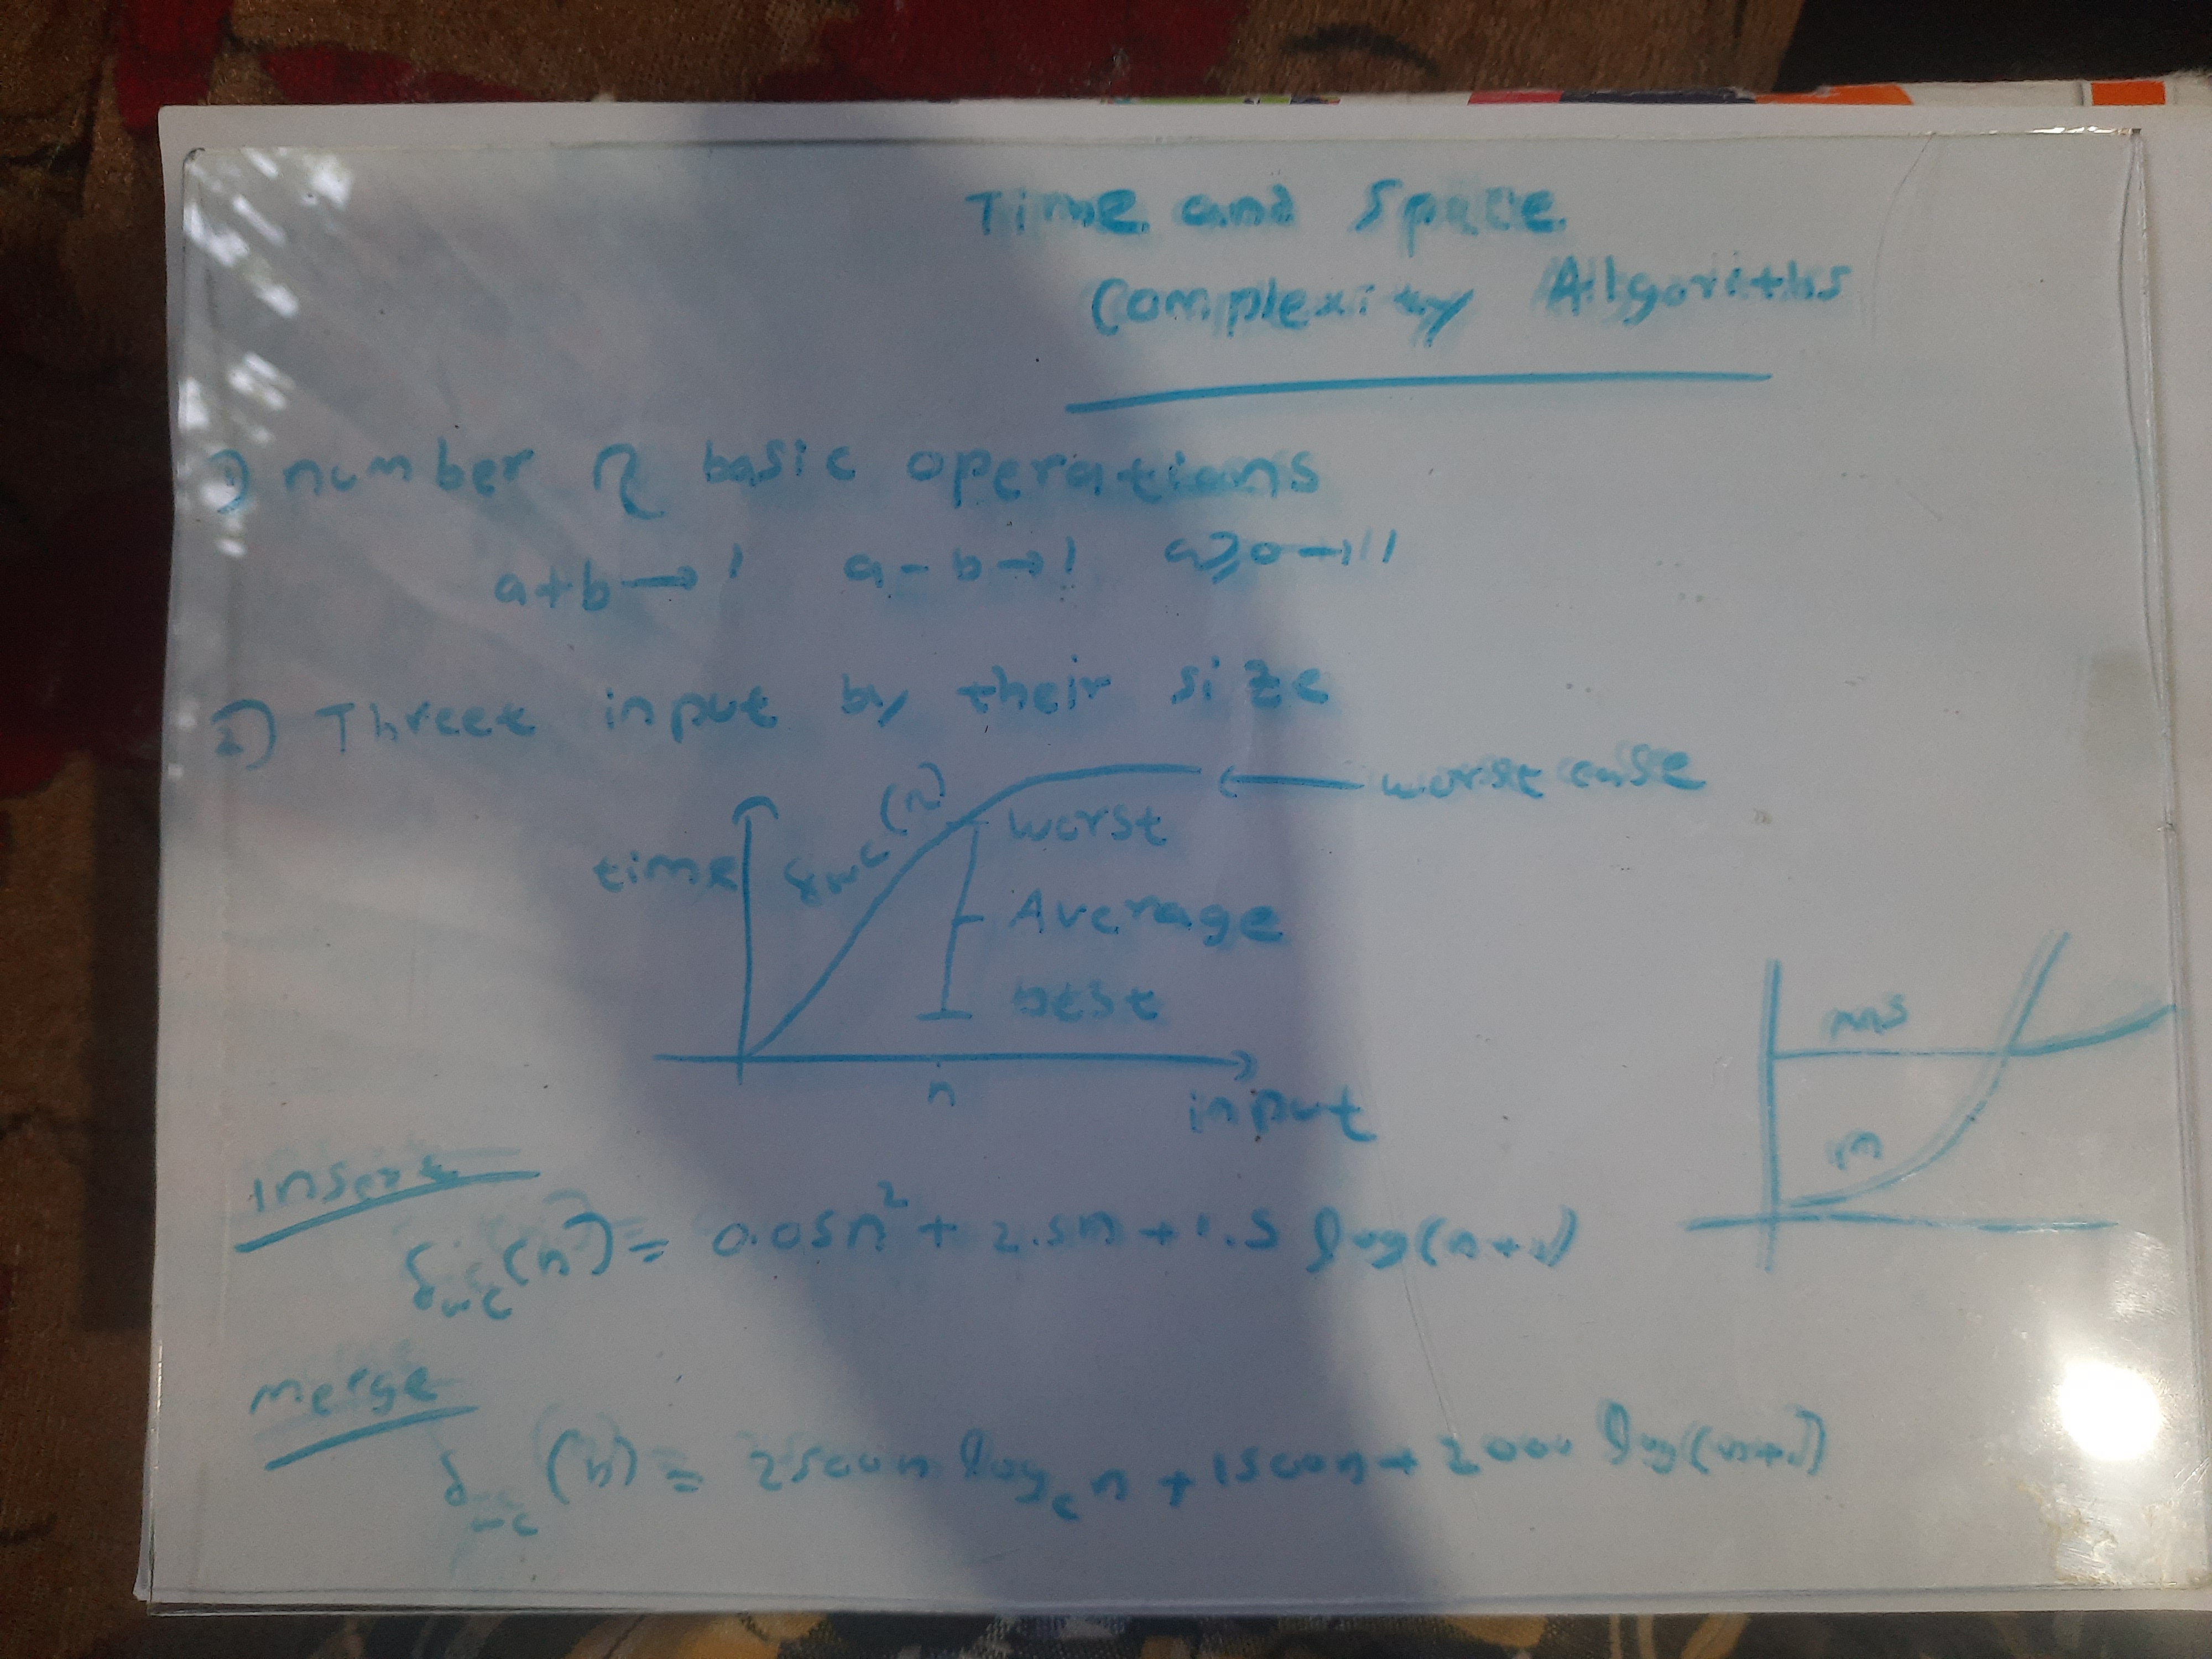 Time and Space
Complexity Algoriths
1) number of basic operations
a+b → 1 a-b → 1 a≥0 → 1
2) Threet input by their size
time
fwc(n)
worst
worst case
Average
best
n
input
ms
in
Insert
fwc(n) = 0.05n² + 2.5n + 1.5 log(n+1)
Merge
fwc(n) = 2500n logₑn + 1500n + 2000 log(n+1)